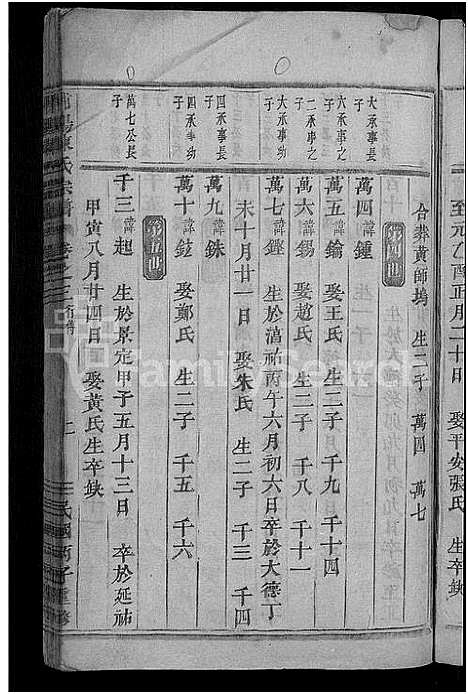 至元乙酉正月二十日 娶平安張氏 生卒缺
合葬黃師塢 生二子 萬四 萬七
第四世
大承事長子
萬四 諱鍾
六承事之子
萬五 諱鑰 娶王氏 生二子 千九 千十四
二承事之子
萬六 諱錫 娶趙氏 生二子 千八 千十一
大承事幼子
萬七 諱鏗 生於湻祐丙午六月初六日卒於大德丁
未十月廿一日 娶朱氏 生二子 千三 千四
四承事長子
萬九 諱銖
四承事幼子
萬十 諱鉉 娶鄭氏 生二子 千五 千六
第五世
萬七公長子
千三 諱起 生於景定甲子五月十三日 卒於延祐
甲寅八月廿四日 娶黃氏生卒缺
氏宗譜
民國丙子重修
FamilySearch